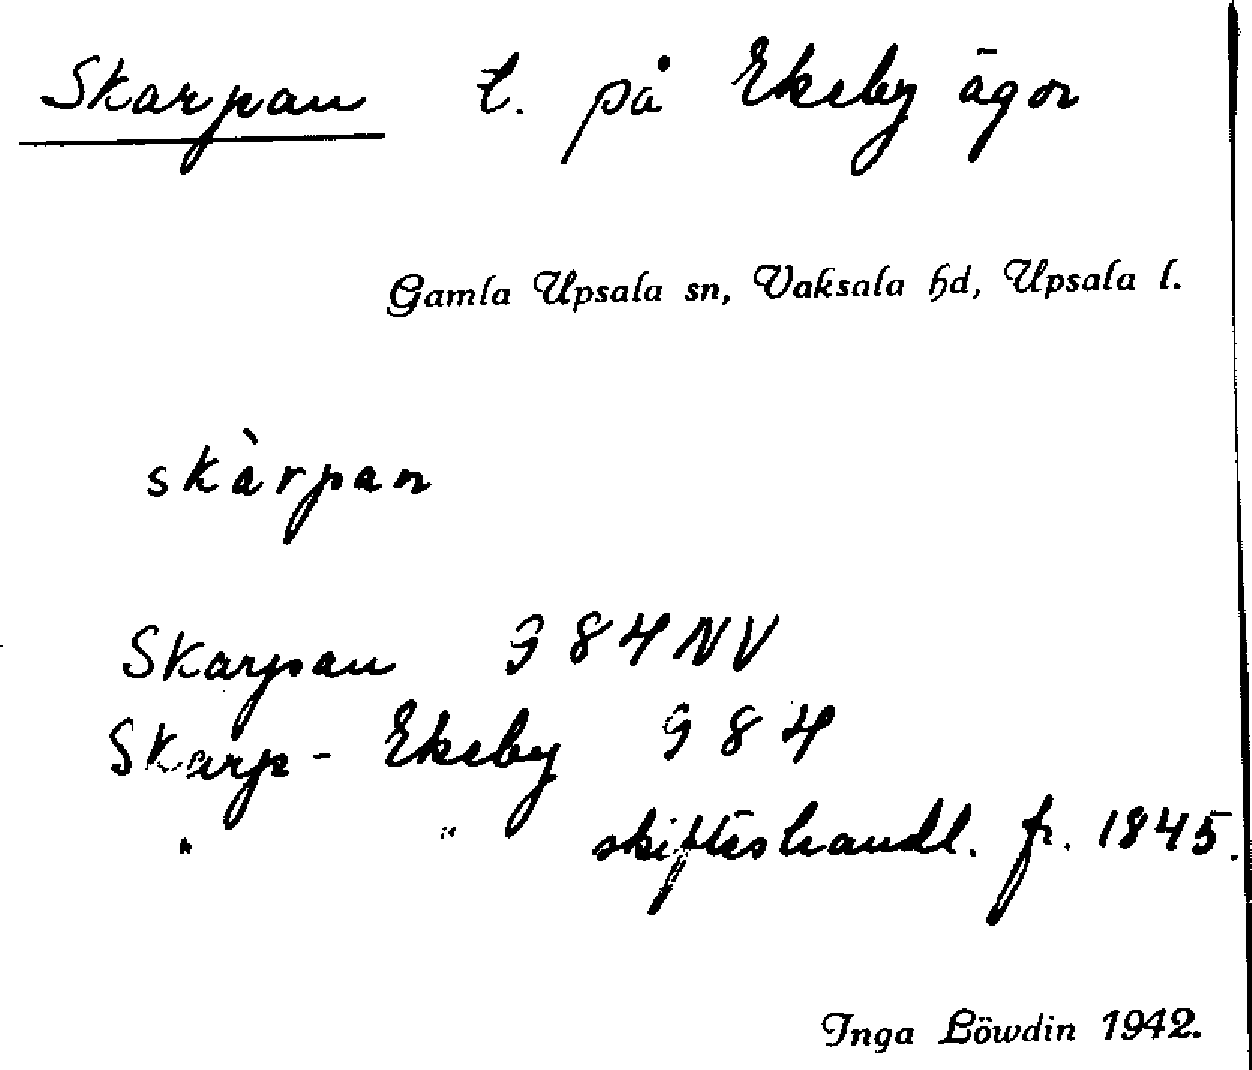 Skarpan t. på Ekeby ägor
Gamla Upsala sn, Vaksala hd, Upsala l.
skàrpan
Skarpan G 84 NV
Skarp-Ekeby G 84
" " skifteshandl. fr. 1845.
Inga Löwdin 1942.